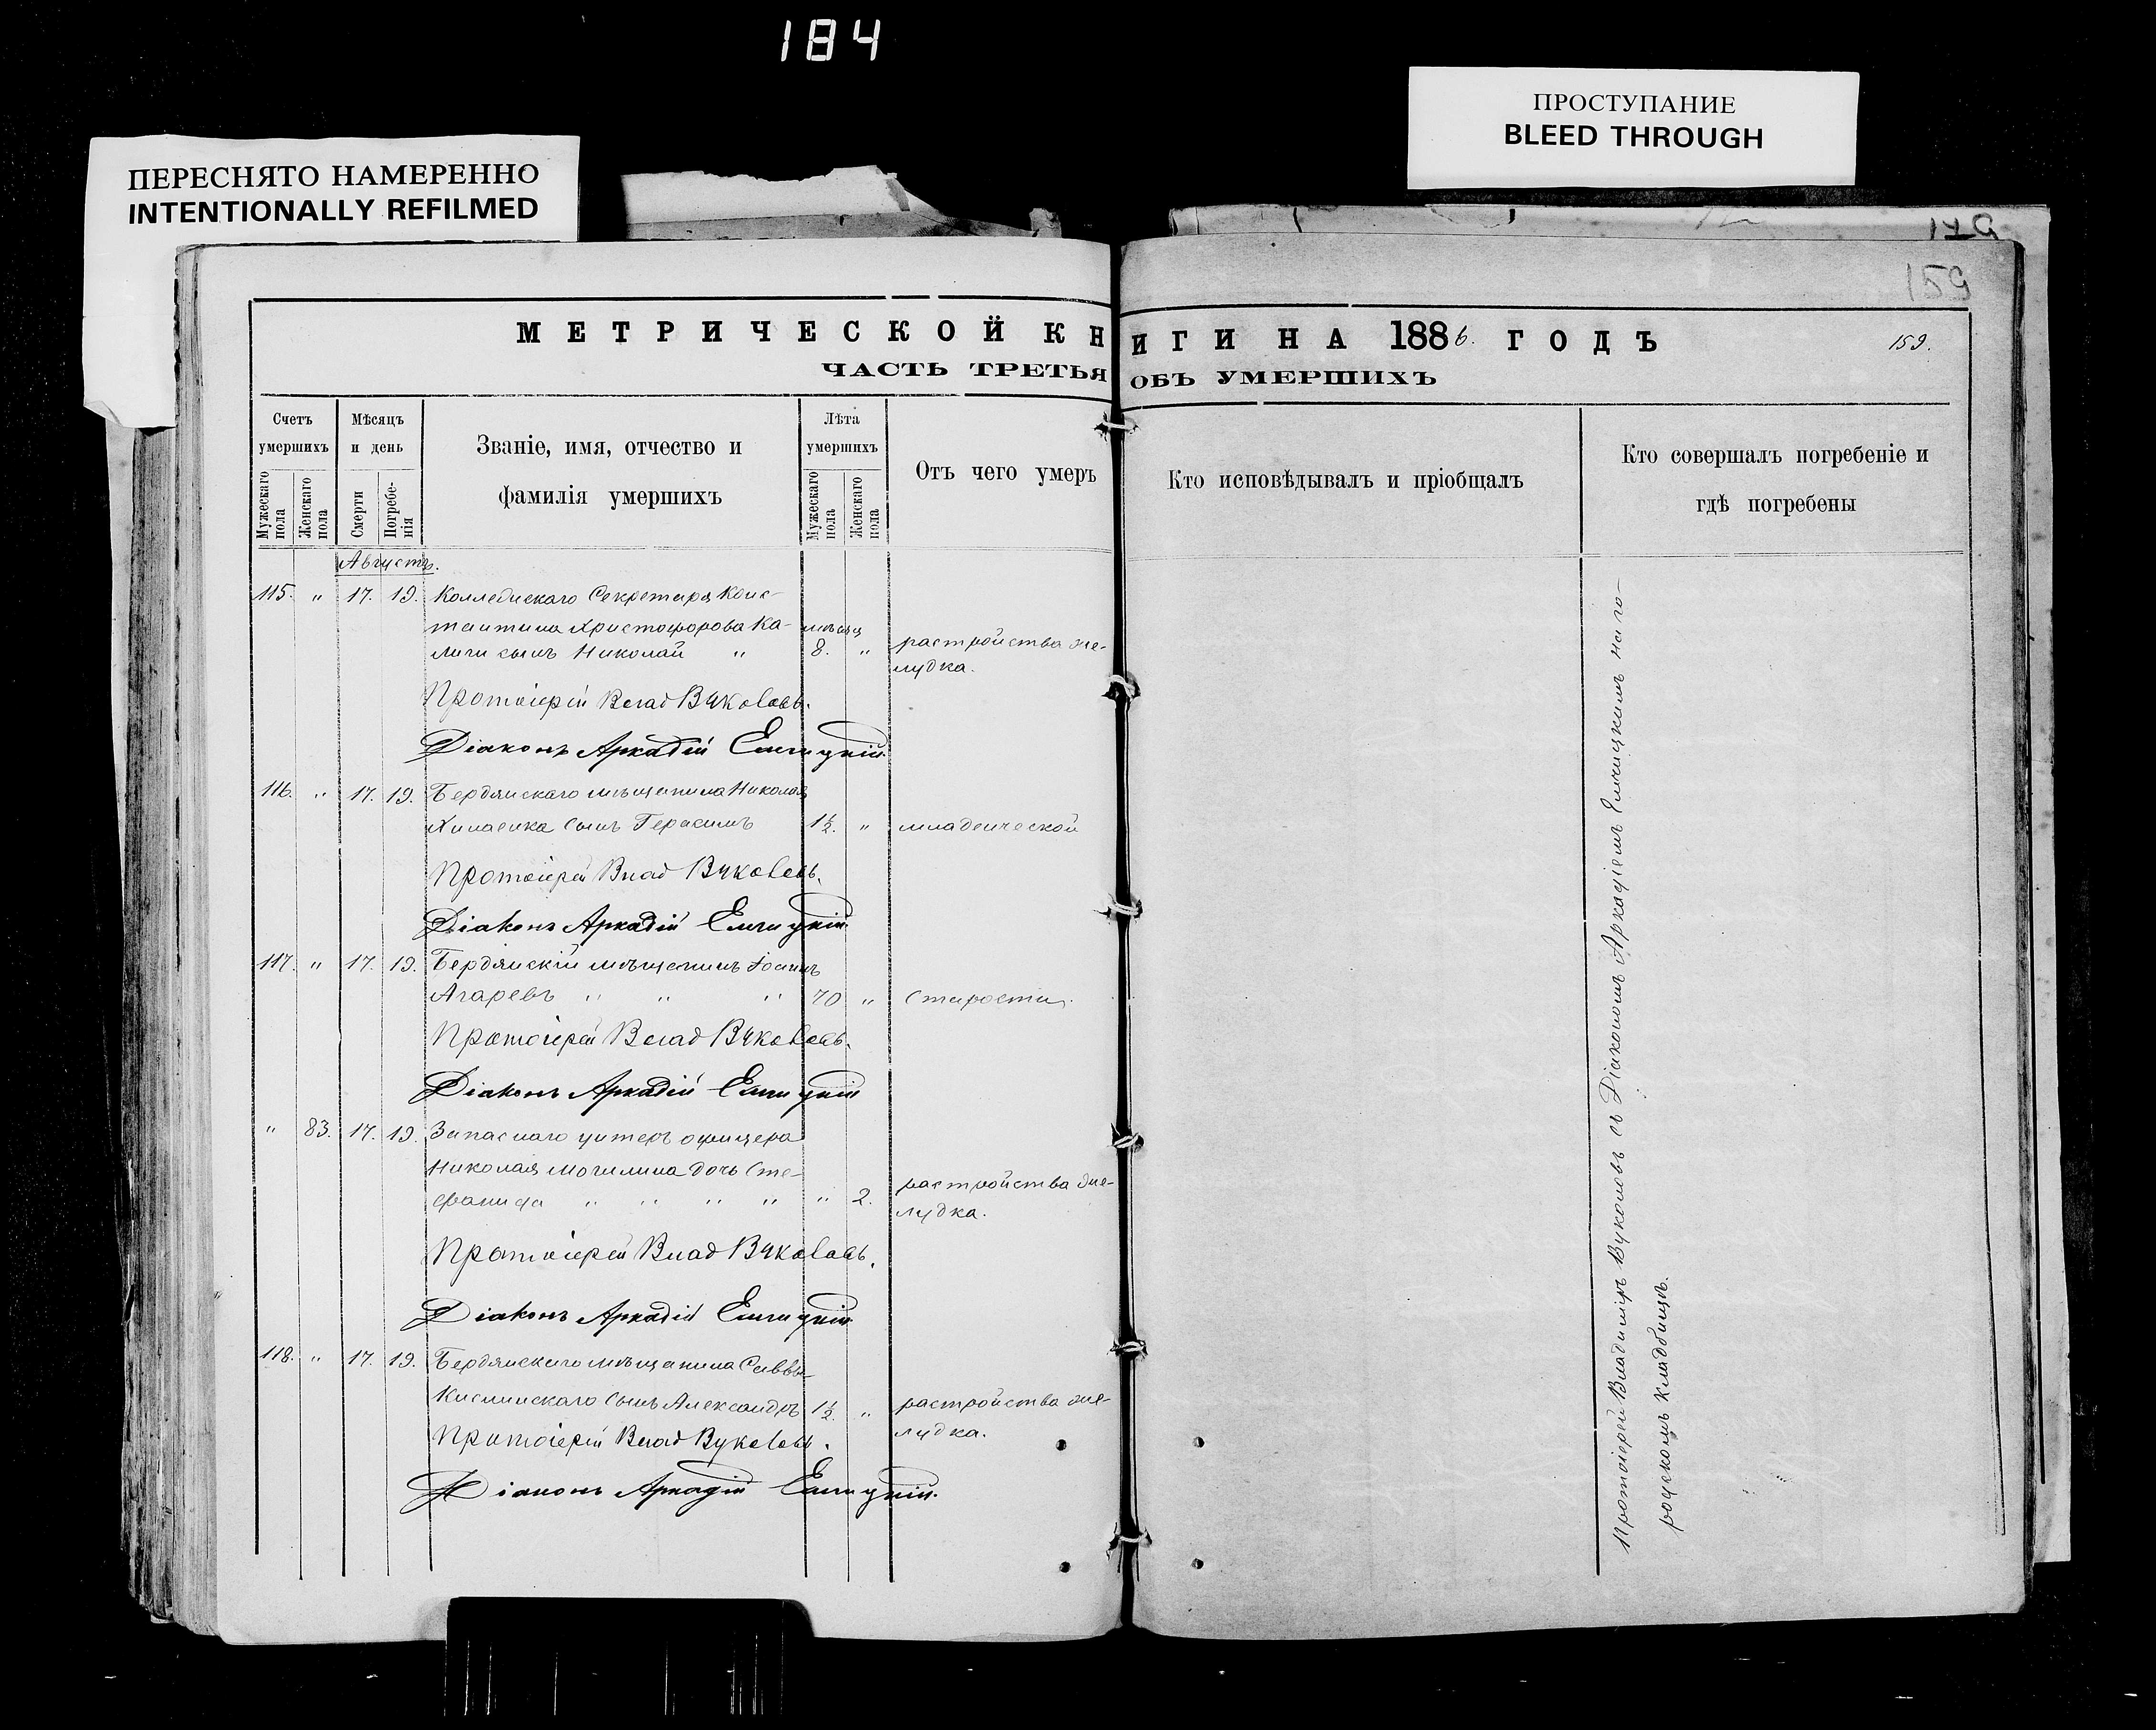 184
ПЕРЕСНЯТО НАМЕРЕННО
INTENTIONALLY REFILMED
ПРОСТУПАНИЕ
BLEED THROUGH
159
МЕТРИЧЕСКОЙ КНИГИ НА 1886. ГОДЪ
159.
ЧАСТЬ ТРЕТЬЯ ОБЪ УМЕРШИХЪ
Счетъ умершихъ
Мужескаго пола
Женскаго пола
Мѣсяцъ и день
Смерти
Погребе-
нія
Званіе, имя, отчество и
фамилія умершихъ
Лѣта умершихъ
Мужескаго пола
Женскаго пола
Отъ чего умеръ
Кто исповѣдывалъ и пріобщалъ
Кто совершалъ погребеніе и
гдѣ погребены
Августъ.
115. " 17. 19. Коллежскаго Секретаря Конс-
тантина Христофорова Ка- мѣсяц
лиги сынъ Николай " 8. " растройства же-
лудка.
Протоіерей Влад Вуколовъ.
Діаконъ Аркадій
116. " 17. 19. Бердянскаго мѣщанина Николая
сынъ Герасимъ 1½. " младенческой
Протоіерей Влад Вуколовъ.
Діаконъ Аркадій
117. " 17. 19. Бердянскій мѣщанинъ Іоаннъ
Агаревъ " " " 70 " старости.
Протоіерей Влад Вуколовъ.
Діаконъ Аркадій
" 83. 17. 19. Запаснаго унтеръ офицера
Николая Могилина дочь Сте-
фанида " " " " " 2. растройства же-
лудка.
Протоіерей Влад Вуколовъ.
Діаконъ Аркадій
118. " 17. 19. Бердянскаго мѣщанина Саввы
сынъ Александръ 1½. " растройства же-
лудка.
Протоіерей Влад Вуколовъ.
Діаконъ Аркадій
Протоіерей Владиміръ Вуколовъ съ Діакономъ Аркадіемъ на го-
родскомъ кладбищѣ.